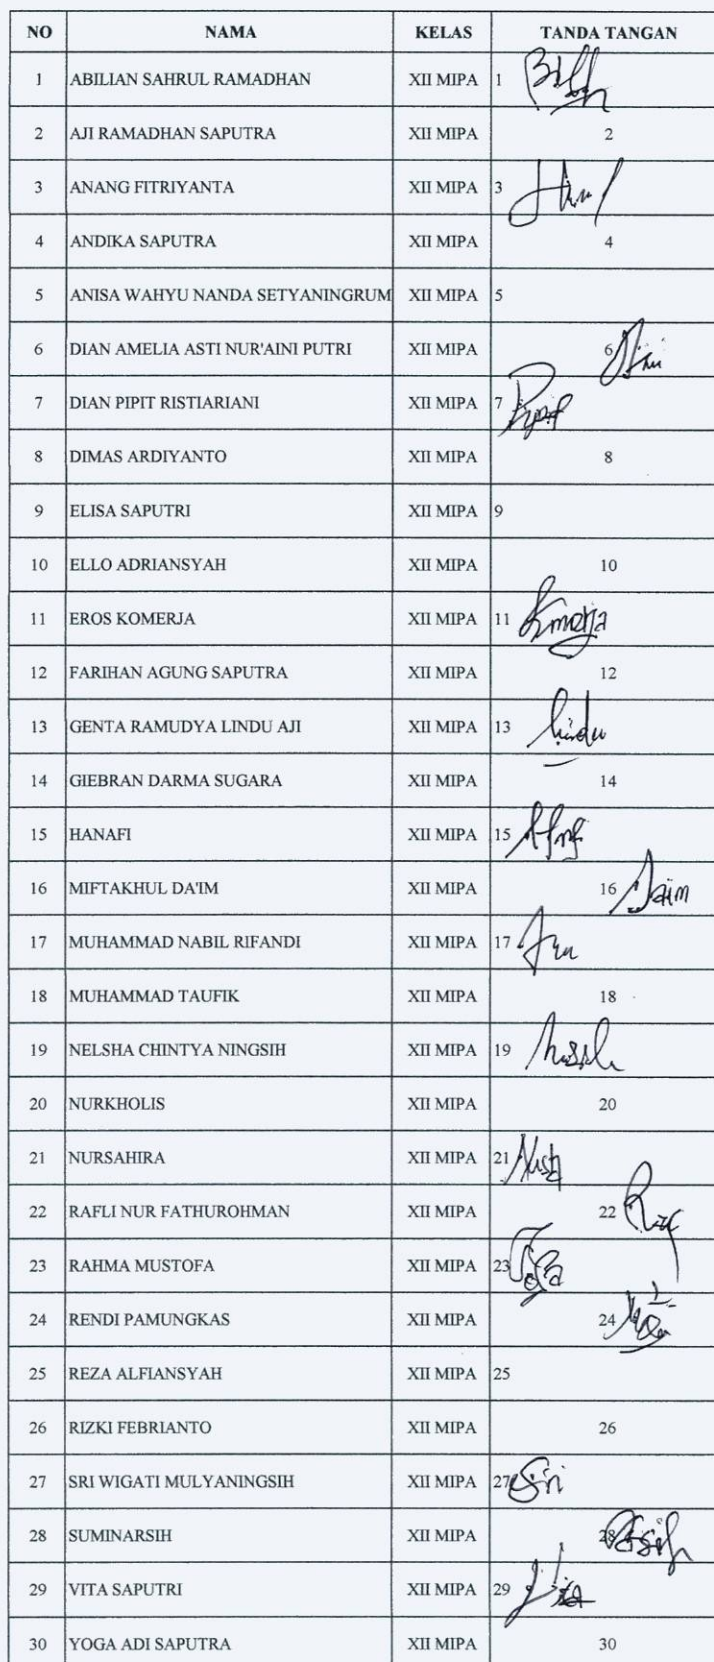 NO NAMA KELAS TANDA TANGAN
1 ABILIAN SAHRUL RAMADHAN XII MIPA 1
2 AJI RAMADHAN SAPUTRA XII MIPA 2
3 ANANG FITRIYANTA XII MIPA 3
4 ANDIKA SAPUTRA XII MIPA 4
5 ANISA WAHYU NANDA SETYANINGRUM XII MIPA 5
6 DIAN AMELIA ASTI NUR'AINI PUTRI XII MIPA 6
7 DIAN PIPIT RISTIARIANI XII MIPA 7
8 DIMAS ARDIYANTO XII MIPA 8
9 ELISA SAPUTRI XII MIPA 9
10 ELLO ADRIANSYAH XII MIPA 10
11 EROS KOMERJA XII MIPA 11 Kmerja
12 FARIHAN AGUNG SAPUTRA XII MIPA 12
13 GENTA RAMUDYA LINDU AJI XII MIPA 13 Lindu
14 GIEBRAN DARMA SUGARA XII MIPA 14
15 HANAFI XII MIPA 15
16 MIFTAKHUL DA'IM XII MIPA 16 Daim
17 MUHAMMAD NABIL RIFANDI XII MIPA 17
18 MUHAMMAD TAUFIK XII MIPA 18
19 NELSHA CHINTYA NINGSIH XII MIPA 19
20 NURKHOLIS XII MIPA 20
21 NURSAHIRA XII MIPA 21
22 RAFLI NUR FATHUROHMAN XII MIPA 22
23 RAHMA MUSTOFA XII MIPA 23
24 RENDI PAMUNGKAS XII MIPA 24
25 REZA ALFIANSYAH XII MIPA 25
26 RIZKI FEBRIANTO XII MIPA 26
27 SRI WIGATI MULYANINGSIH XII MIPA 27 Sri
28 SUMINARSIH XII MIPA 28
29 VITA SAPUTRI XII MIPA 29
30 YOGA ADI SAPUTRA XII MIPA 30